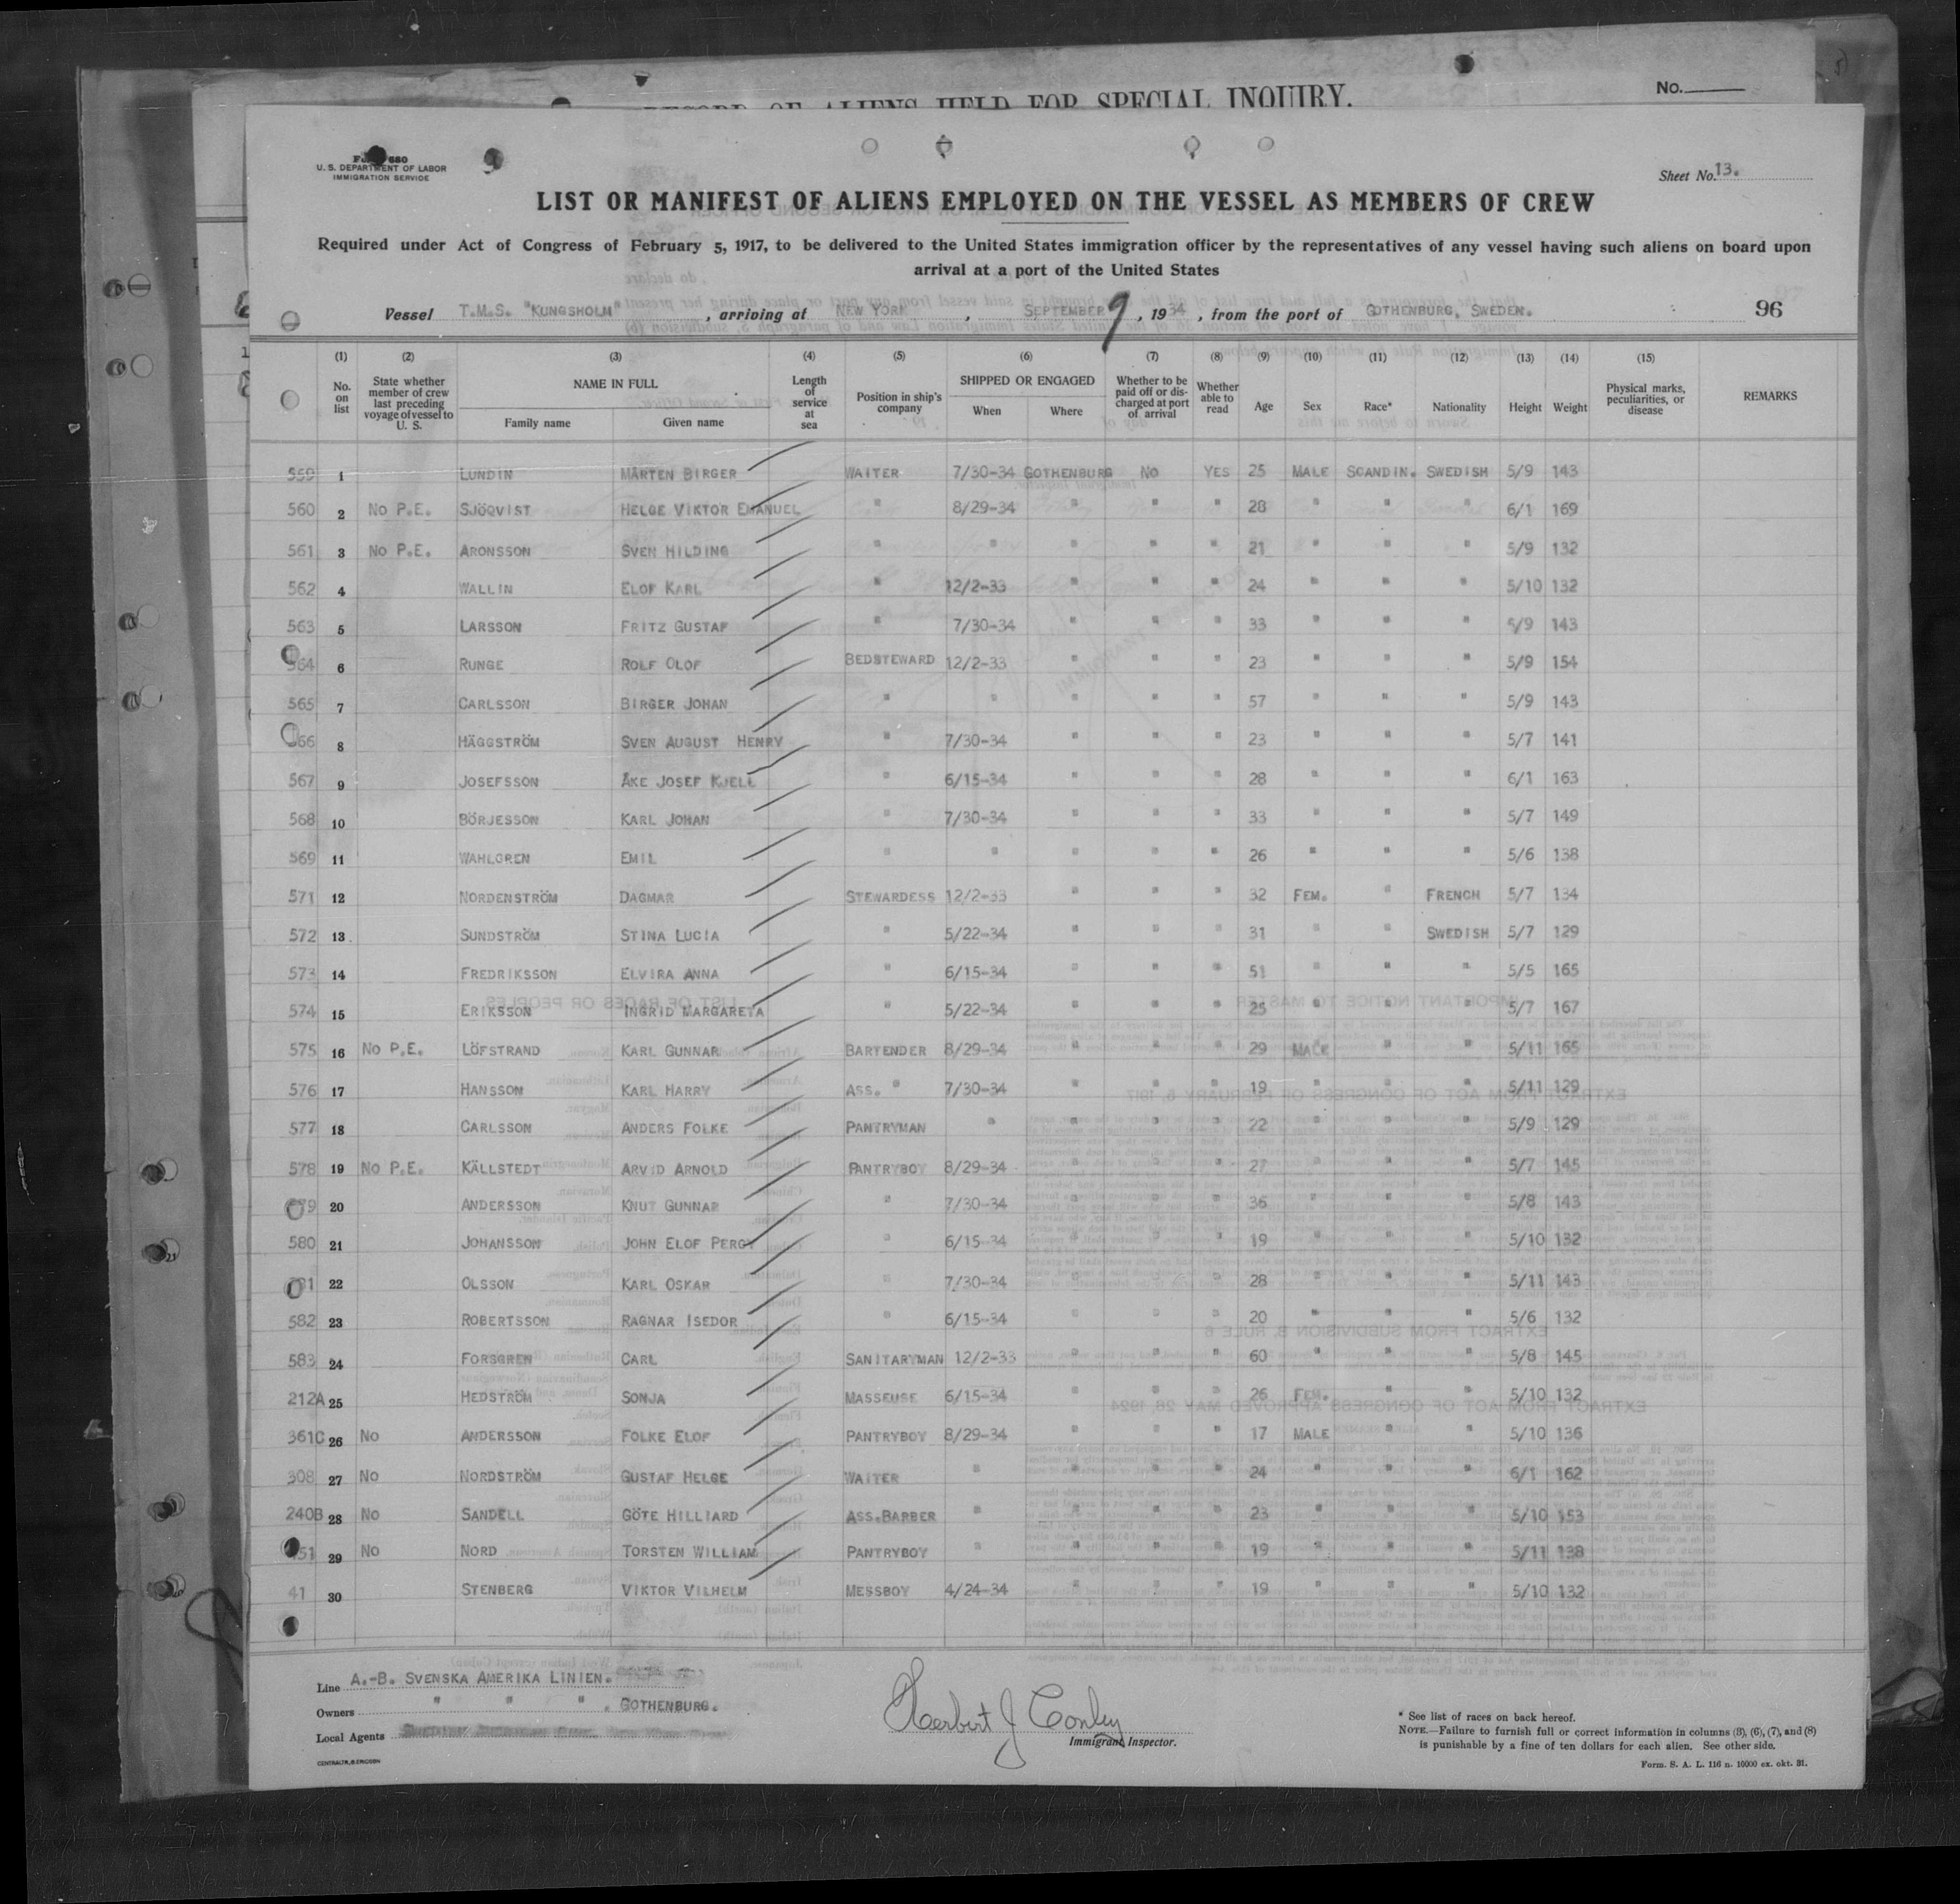 RECORD OF ALIENS HELD FOR SPECIAL INQUIRY.
No.
U. S. DEPARTMENT OF LABOR
IMMIGRATION SERVICE
Sheet No. 13.
LIST OR MANIFEST OF ALIENS EMPLOYED ON THE VESSEL AS MEMBERS OF CREW
Required under Act of Congress of February 5, 1917, to be delivered to the United States immigration officer by the representatives of any vessel having such aliens on board upon
arrival at a port of the United States
Vessel T.M.S. "KUNGSHOLM", arriving at NEW YORK, SEPTEMBER 9, 1934, from the port of GOTHENBURG, SWEDEN. 96
(1) (2) (3) (4) (5) (6) (7) (8) (9) (10) (11) (12) (13) (14) (15)
No. on list State whether member of crew last preceding voyage of vessel to U. S. NAME IN FULL Family name Given name Length of service at sea Position in ship's company SHIPPED OR ENGAGED When Where Whether to be paid off or discharged at port of arrival Whether able to read Age Sex Race* Nationality Height Weight Physical marks, peculiarities, or disease REMARKS
559 1 LUNDIN MÅRTEN BIRGER WAITER 7/30-34 GOTHENBURG NO YES 25 MALE SCANDIN. SWEDISH 5/9 143
560 2 NO P.E. SJÖQVIST HELGE VIKTOR EMANUEL " 8/29-34 " " " 28 " " " 6/1 169
561 3 NO P.E. ARONSSON SVEN HILDING " " " " " 21 " " " 5/9 132
562 4 WALLIN ELOF KARL " 12/2-33 " " " 24 " " " 5/10 132
563 5 LARSSON FRITZ GUSTAF " 7/30-34 " " " 33 " " " 5/9 143
564 6 RUNGE ROLF OLOF BEDSTEWARD 12/2-33 " " " 23 " " " 5/9 154
565 7 CARLSSON BIRGER JOHAN " " " " " 57 " " " 5/9 143
566 8 HÄGGSTRÖM SVEN AUGUST HENRY " 7/30-34 " " " 23 " " " 5/7 141
567 9 JOSEFSSON ÅKE JOSEF KJELL " 6/15-34 " " " 28 " " " 6/1 163
568 10 BÖRJESSON KARL JOHAN " 7/30-34 " " " 33 " " " 5/7 149
569 11 WAHLGREN EMIL " " " " " 26 " " " 5/6 138
571 12 NORDENSTRÖM DAGMAR STEWARDESS 12/2-33 " " " 32 FEM. " FRENCH 5/7 134
572 13 SUNDSTRÖM STINA LUCIA " 5/22-34 " " " 31 " " SWEDISH 5/7 129
573 14 FREDRIKSSON ELVIRA ANNA " 6/15-34 " " " 51 " " " 5/5 165
574 15 ERIKSSON INGRID MARGARETA " 5/22-34 " " " 25 " " " 5/7 167
575 16 NO P.E. LÖFSTRAND KARL GUNNAR BARTENDER 8/29-34 " " " 29 MALE " " 5/11 165
576 17 HANSSON KARL HARRY ASS. " 7/30-34 " " " 19 " " " 5/11 129
577 18 CARLSSON ANDERS FOLKE PANTRYMAN " " " " 22 " " " 5/9 129
578 19 NO P.E. KÄLLSTEDT ARVID ARNOLD PANTRYBOY 8/29-34 " " " 27 " " " 5/7 145
579 20 ANDERSSON KNUT GUNNAR " 7/30-34 " " " 36 " " " 5/8 143
580 21 JOHANSSON JOHN ELOF PERCY " 6/15-34 " " " 19 " " " 5/10 132
581 22 OLSSON KARL OSKAR " 7/30-34 " " " 28 " " " 5/11 143
582 23 ROBERTSSON RAGNAR ISEDOR " 6/15-34 " " " 20 " " " 5/6 132
583 24 FORSGREN CARL SANITARYMAN 12/2-33 " " " 60 " " " 5/8 145
212A 25 HEDSTRÖM SONJA MASSEUSE 6/15-34 " " " 26 FEM. " " 5/10 132
361C 26 NO ANDERSSON FOLKE ELOF PANTRYBOY 8/29-34 " " " 17 MALE " " 5/10 136
308 27 NO NORDSTRÖM GUSTAF HELGE WAITER " " " " 24 " " " 6/1 162
240B 28 NO SANDELL GÖTE HILLIARD ASS.BARBER " " " " 23 " " " 5/10 153
51 29 NO NORD TORSTEN WILLIAM PANTRYBOY " " " " 19 " " " 5/11 138
41 30 STENBERG VIKTOR VILHELM MESSBOY 4/24-34 " " " 19 " " " 5/10 132
Line A.-B. SVENSKA AMERIKA LINIEN.
Owners " " " . GOTHENBURG.
Local Agents
Herbert J Conley
Immigrant Inspector.
* See list of races on back hereof.
NOTE.—Failure to furnish full or correct information in columns (3), (6), (7), and (8)
is punishable by a fine of ten dollars for each alien. See other side.
CENTRALTR, G. ERICSON
Form. S. A. L. 116 n. 10000 ex. okt. 31.